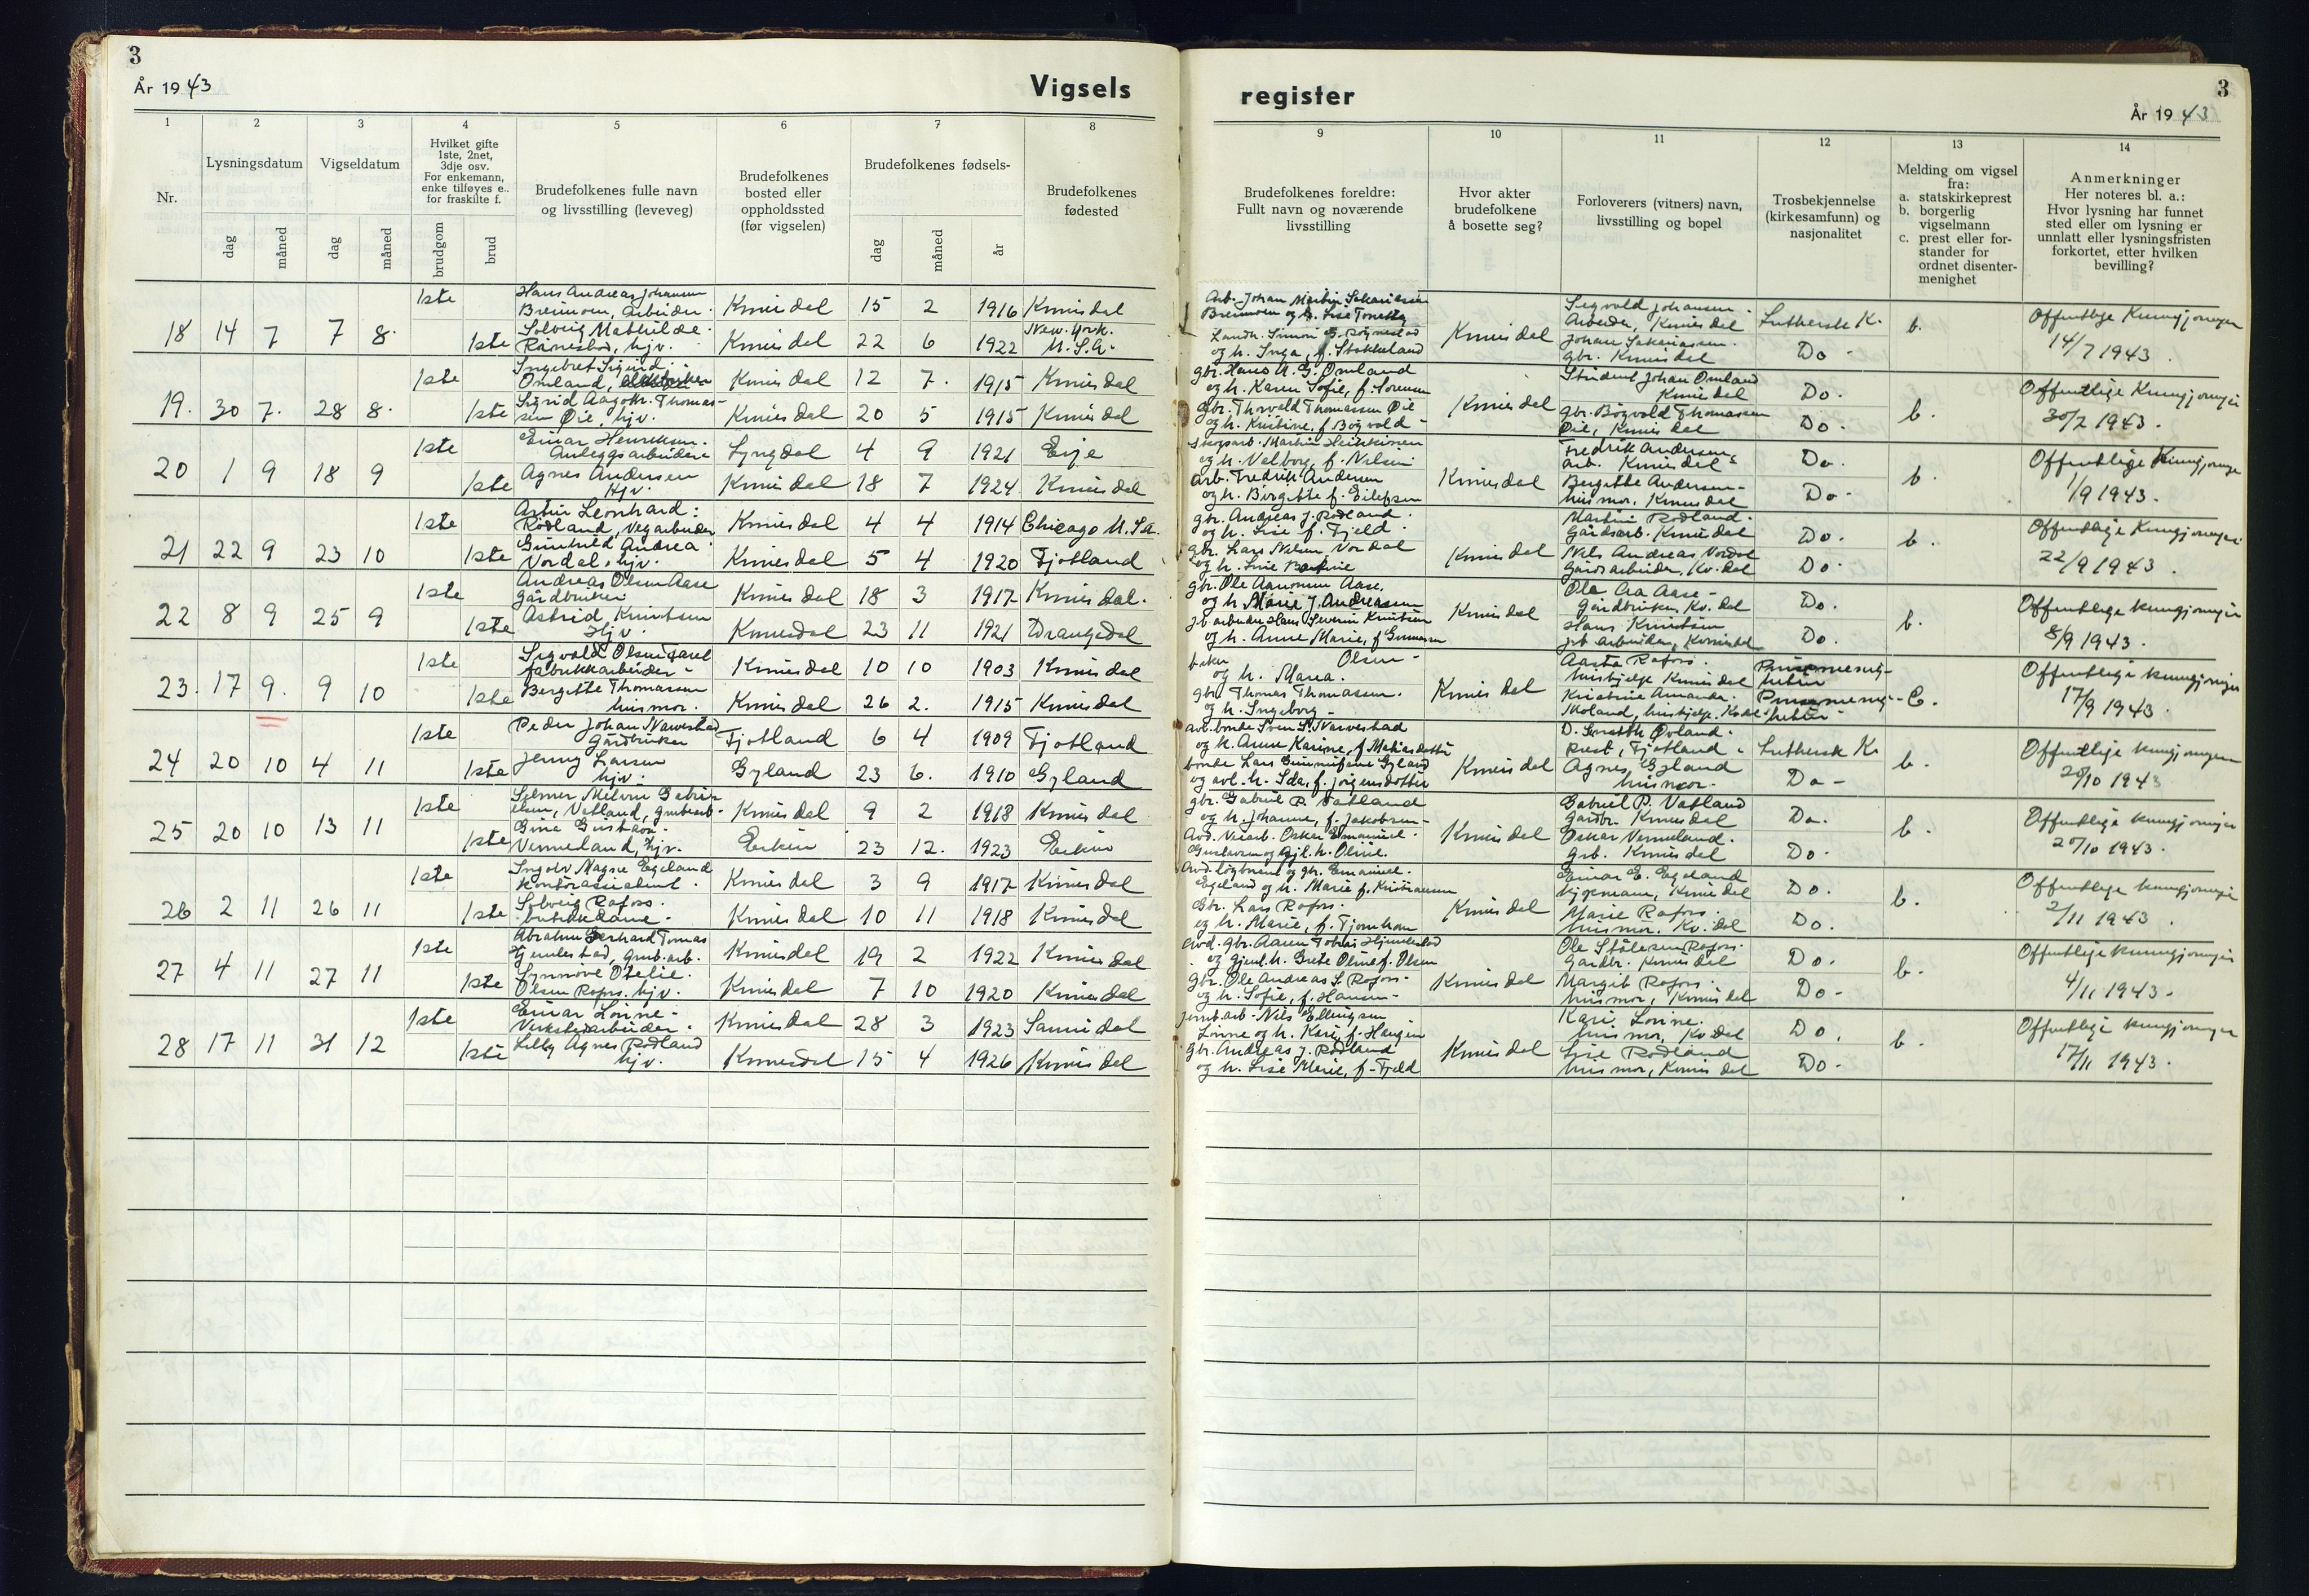 3
År 1943
Vigsels
1 2 3 4 5 6 7 8
Nr.
Lysningsdatum
Vigseldatum
Hvilket gifte
1ste, 2net,
3dje osv.
For enkemann,
enke tilføyes e..
for fraskilte f.
Brudefolkenes fulle navn
og livsstilling (leveveg)
Brudefolkenes
bosted eller
oppholdssted
(før vigselen)
Brudefolkenes fødsels-
Brudefolkenes
fødested
dag måned dag måned brudgom brud dag måned år
18 14 7 7 8.
1ste Hans Andreas Johansen
Bremom, Arbeider. Kvinesdal 15 2 1916 Kvinesdal
1ste Solveig Mathilde
hjv. Kvinesdal 22 6 1922 New. York.
U.S.A.
19. 30 7. 28 8.
1ste Ingebret Sigurd
Omland, Kvinesdal 12 7. 1915 Kvinesdal
1ste Sigrid Aagoth. Thomas-
sen Øie, hjv. Kvinesdal 20 5 1915 Kvinesdal
20 1 9 18 9
1ste Einar Henriksen.
Anleggsarbeider Lyngdal 4 9 1921 Eije
1ste Agnes Andersen
Hjv. Kvinesdal 18 7 1924 Kvinesdal
21 22 9 23 10
1ste Leonhard:
Rødland, Vegarbeider Kvinesdal 4 4 1914 Chicago U.S.A.
1ste Gunhild Andrea
Vordal, hjv. Kvinesdal 5 4 1920 Fjotland
22 8 9 25 9
1ste Andreas Olsen Aase
Gårdbruker Kvinesdal 18 3 1917 Kvinesdal.
1ste Astrid Knutsen
Hjv. Kvinesdal 23 11 1921 Drangedal
23. 17 9. 9 10
1ste Sigvald Olsen
fabrikkarbeider Kvinesdal 10 10 1903 Kvinesdal
1ste Bergitte Thomassen
husmor. Kvinesdal 26 2. 1915 Kvinesdal
24 20 10 4 11
1ste Peder Johan Narvestad
Gårdbruker Fjotland 6 4 1909 Fjotland
1ste Jenny Larsen
hjv. Gyland 23 6. 1910 Gyland
25 20 10 13 11
1ste Selmer Melvin Gabri-
elsen, Vatland, grubearb. Kvinesdal 9 2 1918 Kvinesdal
1ste Gina Gustava
Vemeland, hjv. 23 12. 1923
26 2 11 26 11
1ste Ingolv Magne Egeland
Kontorassistent. Kvinesdal 3 9 1917 Kvinesdal
1ste Solveig Rafoss.
butikkdame. Kvinesdal 10 11 1918 Kvinesdal
27 4 11 27 11
1ste Abraham Gerhard Tomas
grub. arb. Kvinesdal 19 2 1922 Kvinesdal
1ste Synnøve Otelie.
Olsen Rafos. hjv. Kvinesdal 7 10 1920 Kvinesdal
28 17 11 31 12
1ste Einar Lonne
Verkstedarbeider. Kvinesdal 28 3 1923 Sannidal
1ste Lilly Agnes Rødland
hjv. Kvinesdal 15 4 1926 Kvinesdal
3
register
År 1943
9 10 11 12 13 14
Brudefolkenes foreldre:
Fullt navn og noværende
livsstilling
Hvor akter
brudefolkene
å bosette seg?
Forloverers (vitners) navn,
livsstilling og bopel
Trosbekjennelse
(kirkesamfunn) og
nasjonalitet
Melding om vigsel
fra:
a. statskirkeprest
b. borgerlig
vigselmann
c. prest eller for-
stander for
ordnet disenter-
menighet
Anmerkninger
Her noteres bl. a.:
Hvor lysning har funnet
sted eller om lysning er
unnlatt eller lysningsfristen
forkortet, etter hvilken
bevilling?
Arb. Johan Martin Sakariassen
Bremom og h. Lise Tonetta
Landh. Simon
og h. Inga, f. Stokkeland
Kvinesdal
Sigvald Johansen
Arbeider, Kvinesdal
Johan Sakariassen.
gbr. Kvinesdal
Lutherske K.
Do -
b.
Offentlige Kunngjøringer
14/7 1943.
gbr. Hans A. G. Omland
og h. Karen Sofie, f. Sorensen
gbr. Thorvald Thomassen Øie
og h. Kristine, f. Bøgvald
Kvinesdal
Student Johan Omland
Kvinesdal
gbr. Bøgvald Thomassen
Øie, Kvinesdal
Do.
Do.
b.
Offentlige Kunngjøringer
30/7 1943.
skogsarb. Martin
og h. Valborg, f. Nilsen
arb. Fredrik Andersen
og h. Birgitte f. Eilefsen
Kvinesdal
Fredrik Andersen,
arb. Kvinesdal
Bergitte Andersen
husmor. Kvinesdal
Do.
Do.
b.
Offentlige Kunngjøringer
1/9 1943.
gbr. Andreas J. Rødland.
og h. Lise f. Fjeld.
gbr. Lars Nilsen, Vordal
og h. Lise
Kvinesdal
Martin Rødland.
Gårdsarb. Kvinesdal
Nils Andreas Vordal
Gårdsarbeider, Kv.dal
Do.
Do
b.
Offentlige Kunngjøringer
22/9 1943.
gbr. Ole Aanonsen Aase,
og h. Marie J. Andreassen
Hans Severin Knutsen
og h. Anne Marie, f. Gunnarsen
Kvinesdal
Ole Aa Aase
Gårdbruker, Kv. dal
Hans Knutsen
jrb. arbeider, Kvinesdal
Do.
Do.
b.
Offentlige kunngjøringer
8/9 1943.
Olsen
og h. Maria.
gbr. Thomas Thomassen.
og h. Ingeborg
Kvinesdal
Aasta Rafoss.
hushjelp Kvinesdal
Kristine Amanda.
Moland, hushjelp. Kv.dal
Pinsemenig-
heten
Pinsemenig-
heten
C.
Offentlige kunngjøringer
17/9 1943.
avl. bonde Sven S. Narvestad
og h. Anne Karine, f. Mathiasdotter
bonde Lars Gunnufsen Gyland
og avl. h. Ida, f. Jörgensdotter
Kvinesdal
Øvland.
prest, Fjotland
Agnes Gyland
husmor.
Luthersk K.
Do -
b.
Offentlige kunngjøringer
20/10 1943
gbr. Gabriel P. Vatland
og h. Johanne, f. Jakobsen
Avd. Veiarb. Oskar Emanuel.
Gustavsen og Gjl. h. Oline.
Kvinesdal
Gabriel P. Vatland
Gårdbr. Kvinesdal
Oskar Vemeland.
Kvinesdal
Do.
Do.
b.
Offentlige kunngjøringer
20/10 1943.
Emanuel.
Egeland og h. Marie f. Kristiansen
Gbr. Lars Rafoss.
og h. Marie, f. Fjomhom
Kvinesdal
Einar E. Egeland
Kjøpmann, Kvinesdal
Marie Rafoss.
husmor, Kv. dal
Do.
Do.
b.
Offentlige kunngjøringer
2/11 1943.
avd. gbr. Aanen Tobias
og gjenl. h. Grete Oline f. Olsen
gbr. Ole Andreas S. Rafoss
og h. Sofie, f. Hansen
Kvinesdal
Ole Stålesen Rafoss.
Gårdbr. Kvinesdal
Margit Rafoss.
husmor, Kvinesdal
Do.
Do.
b.
Offentlige kunngjøringer
4/11 1943.
jernb. arb. Nils Ellingsen
Lonne og h. Kari f. Haugen
gbr. Andreas J. Rødland
og h. Lise Marie, f. Fjeld
Kvinesdal
Kari Lonne.
husmor, Kv.dal
Lise Rødland
husmor, Kvinesdal
Do.
Do.
b.
Offentlige kunngjøringer
17/11 1943.